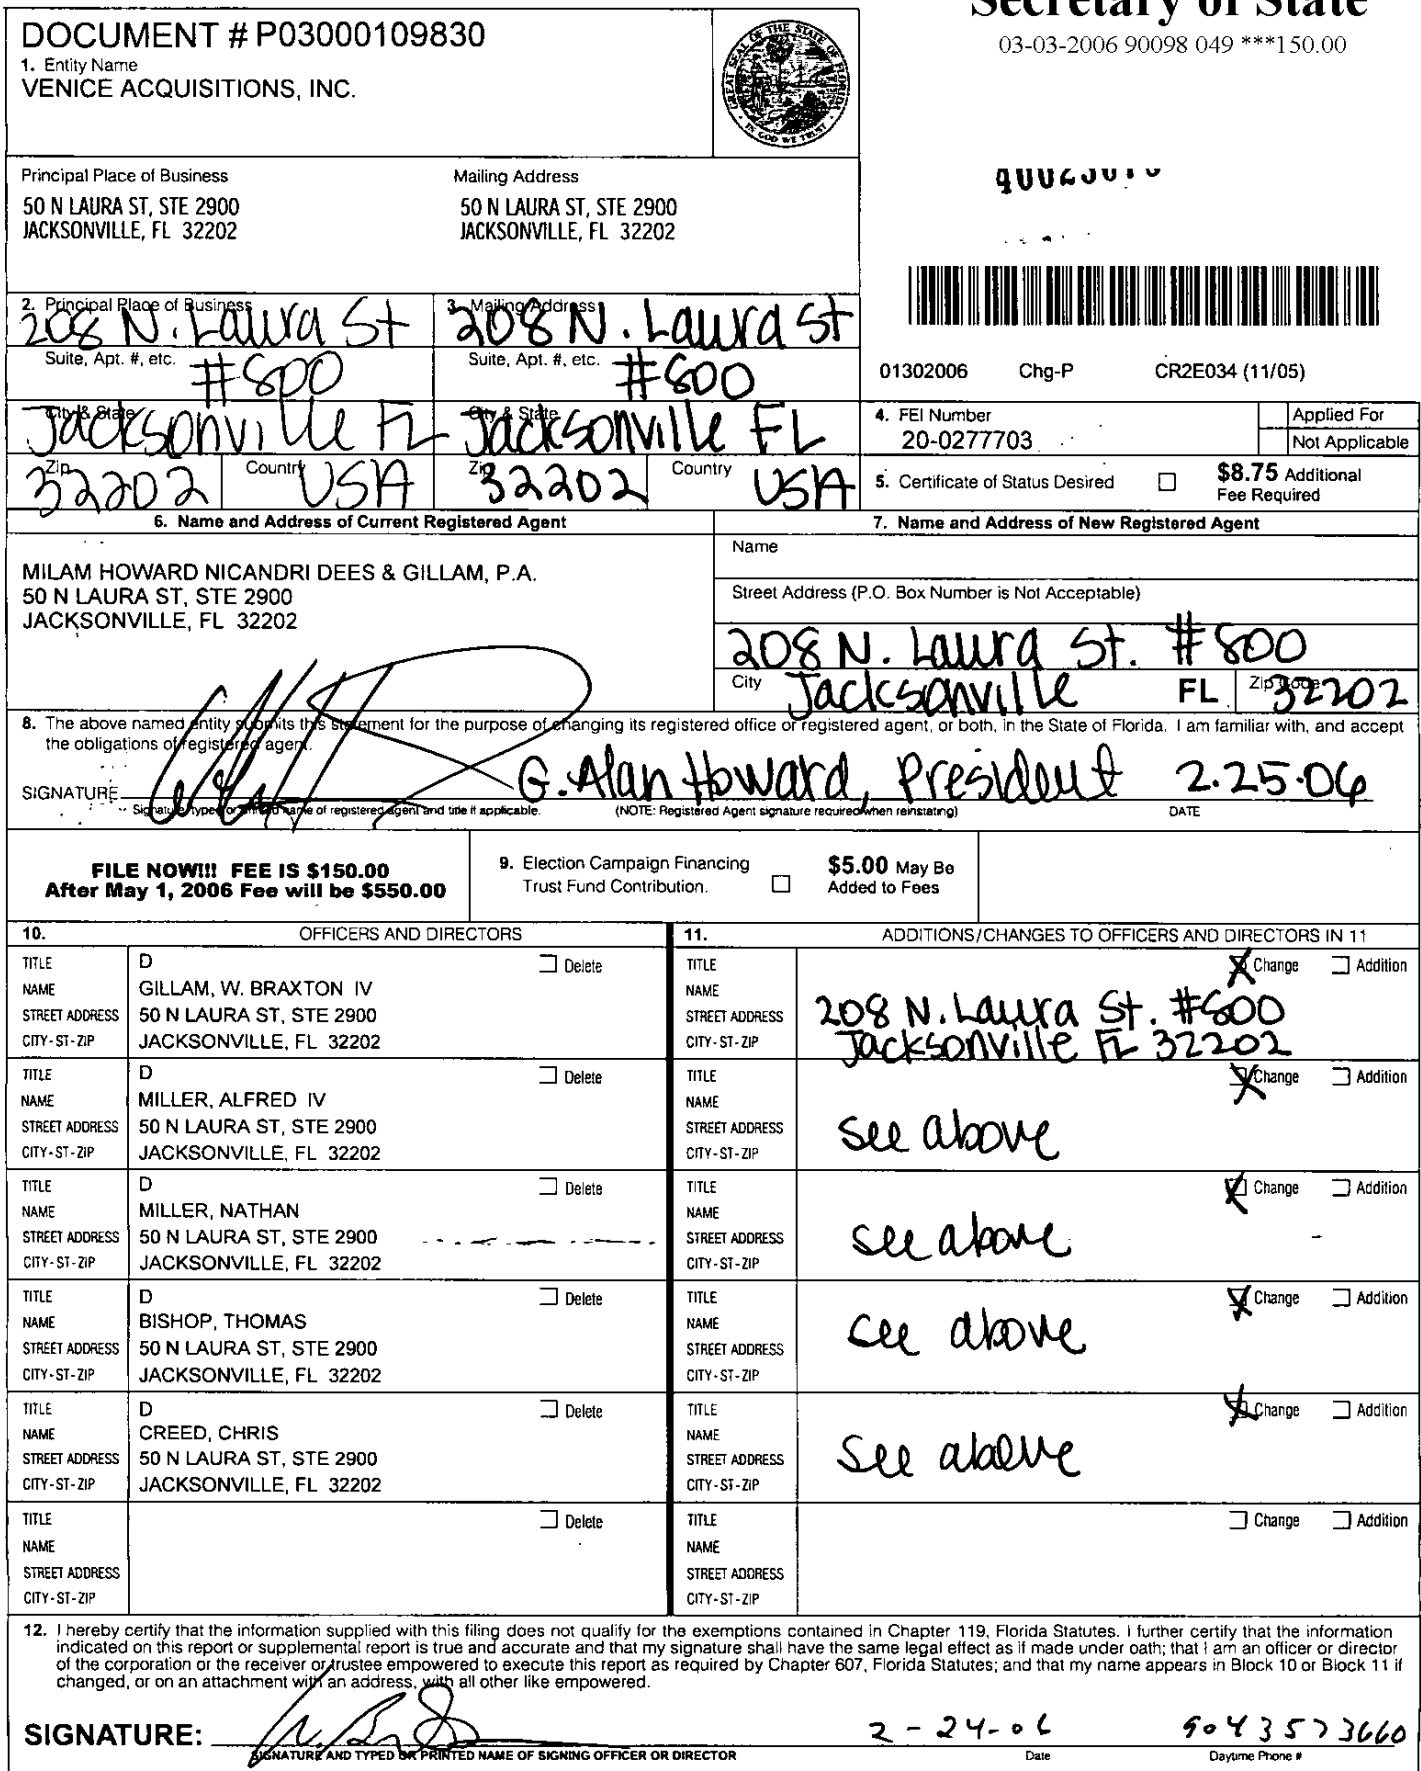 Secretary of State
03-03-2006 90098 049 ***150.00
DOCUMENT # P03000109830
1. Entity Name
VENICE ACQUISITIONS, INC.
GREAT SEAL OF THE STATE OF FLORIDA
IN GOD WE TRUST
Principal Place of Business
50 N LAURA ST, STE 2900
JACKSONVILLE, FL 32202
Mailing Address
50 N LAURA ST, STE 2900
JACKSONVILLE, FL 32202
2. Principal Place of Business
208 N. Laura St
Suite, Apt. #, etc.
#800
City & State
Jacksonville FL
Zip
32202
Country
USA
3. Mailing Address
208 N. Laura St
Suite, Apt. #, etc.
#800
City & State
Jacksonville FL
Zip
32202
Country
USA
01302006 Chg-P CR2E034 (11/05)
4. FEI Number
20-0277703
Applied For
Not Applicable
5. Certificate of Status Desired
$8.75 Additional
Fee Required
6. Name and Address of Current Registered Agent
MILAM HOWARD NICANDRI DEES & GILLAM, P.A.
50 N LAURA ST, STE 2900
JACKSONVILLE, FL 32202
7. Name and Address of New Registered Agent
Name
Street Address (P.O. Box Number is Not Acceptable)
208 N. Laura St. #800
City Jacksonville FL Zip Code 32202
8. The above named entity submits this statement for the purpose of changing its registered office or registered agent, or both, in the State of Florida. I am familiar with, and accept
the obligations of registered agent.
SIGNATURE G. Alan Howard, President 2.25.06
Signature, typed or printed name of registered agent and title if applicable. (NOTE: Registered Agent signature required when reinstating) DATE
FILE NOW!!! FEE IS $150.00
After May 1, 2006 Fee will be $550.00
9. Election Campaign Financing
Trust Fund Contribution.
$5.00 May Be
Added to Fees
10. OFFICERS AND DIRECTORS
11. ADDITIONS/CHANGES TO OFFICERS AND DIRECTORS IN 11
TITLE D Delete
NAME GILLAM, W. BRAXTON IV
STREET ADDRESS 50 N LAURA ST, STE 2900
CITY-ST-ZIP JACKSONVILLE, FL 32202
TITLE Change Addition
NAME
STREET ADDRESS 208 N. Laura St. #800
CITY-ST-ZIP Jacksonville FL 32202
TITLE D Delete
NAME MILLER, ALFRED IV
STREET ADDRESS 50 N LAURA ST, STE 2900
CITY-ST-ZIP JACKSONVILLE, FL 32202
TITLE Change Addition
NAME
STREET ADDRESS see above
CITY-ST-ZIP
TITLE D Delete
NAME MILLER, NATHAN
STREET ADDRESS 50 N LAURA ST, STE 2900
CITY-ST-ZIP JACKSONVILLE, FL 32202
TITLE Change Addition
NAME
STREET ADDRESS see above
CITY-ST-ZIP
TITLE D Delete
NAME BISHOP, THOMAS
STREET ADDRESS 50 N LAURA ST, STE 2900
CITY-ST-ZIP JACKSONVILLE, FL 32202
TITLE Change Addition
NAME see above
STREET ADDRESS
CITY-ST-ZIP
TITLE D Delete
NAME CREED, CHRIS
STREET ADDRESS 50 N LAURA ST, STE 2900
CITY-ST-ZIP JACKSONVILLE, FL 32202
TITLE Change Addition
NAME
STREET ADDRESS see above
CITY-ST-ZIP
TITLE Delete
NAME
STREET ADDRESS
CITY-ST-ZIP
TITLE Change Addition
NAME
STREET ADDRESS
CITY-ST-ZIP
12. I hereby certify that the information supplied with this filing does not qualify for the exemptions contained in Chapter 119, Florida Statutes. I further certify that the information
indicated on this report or supplemental report is true and accurate and that my signature shall have the same legal effect as if made under oath; that I am an officer or director
of the corporation or the receiver or trustee empowered to execute this report as required by Chapter 607, Florida Statutes; and that my name appears in Block 10 or Block 11 if
changed, or on an attachment with an address, with all other like empowered.
SIGNATURE: 2-24-06 9043573660
SIGNATURE AND TYPED OR PRINTED NAME OF SIGNING OFFICER OR DIRECTOR Date Daytime Phone #